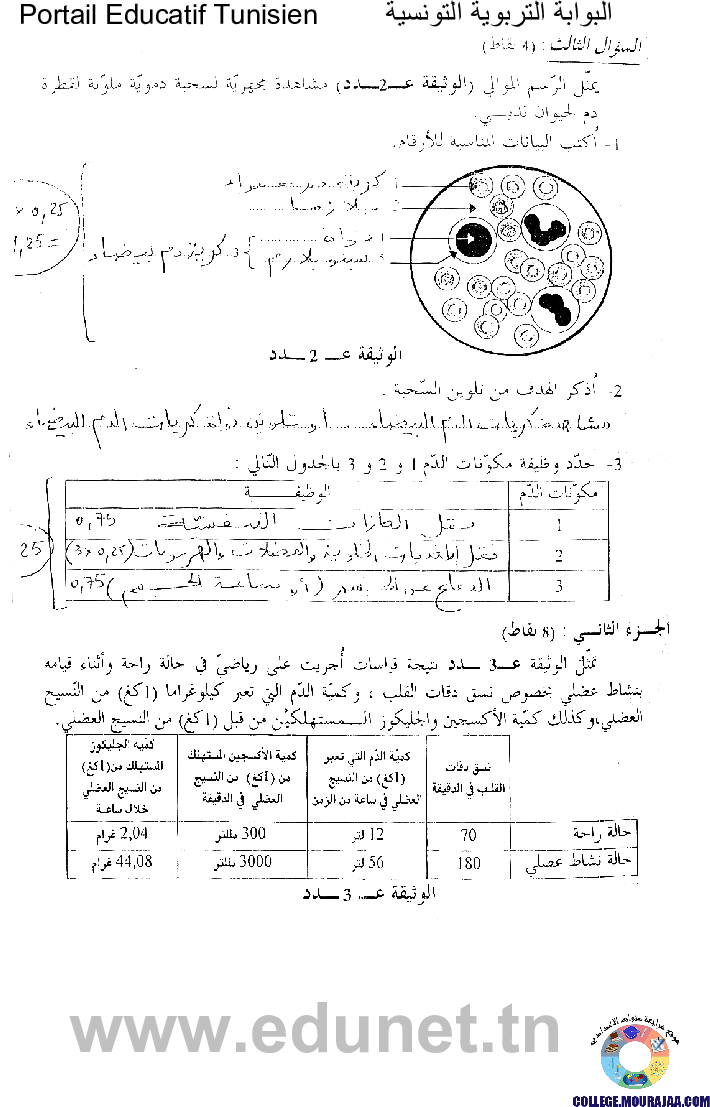 Portail Educatif Tunisien البوابة التربوية التونسية
السؤال الثالث : (4 نقاط)
يمثّل الرّسم الموالي (الوثيقة عــ2ــدد) مشاهدة مجهريّة لسحبة دمويّة ملوّنة لقطرة
دم لحيوان ثديــي.
1- أكتب البيانات المناسبة للأرقام.
1 كرية دم حمراء
2 بلازما
1 نواة
2 سيتوبلازم
3. كرية دم بيضاء
× 0,25
1,25 =
الوثيقة عــ 2 ــدد
2- أذكر الهدف من تلوين السّحبة .
مشاهدة كريات الدم البيضاء أو تلوين نواة كريات الدم البيضاء
3- حدّد وظيفة مكوّنات الدّم 1 و 2 و 3 بالجدول التّالي :
مكوّنات الدّم الوظيفــــة
1 نقل الغازات التنفسيّة 0,75
2 نقل المغذيات الخلوية والفضلات والهرمونات (0,25×3)
3 الدفاع عن الجسم (أو مناعة الجسم) 0,75
25
الجزء الثانــي : (8 نقاط)
تمثّل الوثيقة عــ3 ــدد نتيجة قياسات أُجريت على رياضيّ في حالة راحة وأثناء قيامه
بنشاط عضلي بخصوص نسق دقات القلب ، وكميّة الدّم التي تعبر كيلوغراما (1كغ) من النّسيج
العضلي،وكذلك كميّة الأكسجين والجليكوز المستهلكيْن من قبل (1كغ) من النّسيج العضلي.
نسق دقات القلب في الدقيقة
كميّة الدّم التي تعبر (1كغ) من النّسيج العضلي في ساعة من الزمن
كمية الأكسجين المستهلك من (1كغ) من النّسيج العضلي في الدقيقة
كمّية الجليكوز المستهلك من(1كغ) من النّسيج العضلي خلال ساعة
حالة راحة 70 12 لتر 300 مللتر 2,04 غرام
حالة نشاط عضلي 180 56 لتر 3000 مللتر 44,08 غرام
الوثيقة عــ 3 ــدد
www.edunet.tn
موقع مراجعة
COLLEGE.MOURAJAA.COM